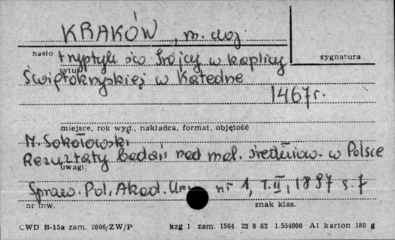 KRAKÓW, m. woj
hasło
sygnatura
tryptyk św Trójcy w kaplicy
tytuł
Świętokrzyskiej w Katedrze
1467r.
miejsce, rok wyd., nakładca, format, objętość
M. Sokołowski
Rezultaty badań nad mal. średniow. w Polsce
uwagi:
Spraw. Pol. Akad. Um. nr 1, T. II, 1897 s. 7
nr inw.
znak klas.
CWD B-15a zam. 3006/ZW/P kzg 1 zam. 1564 22 9 62 1.554000 A1 karton 180 g